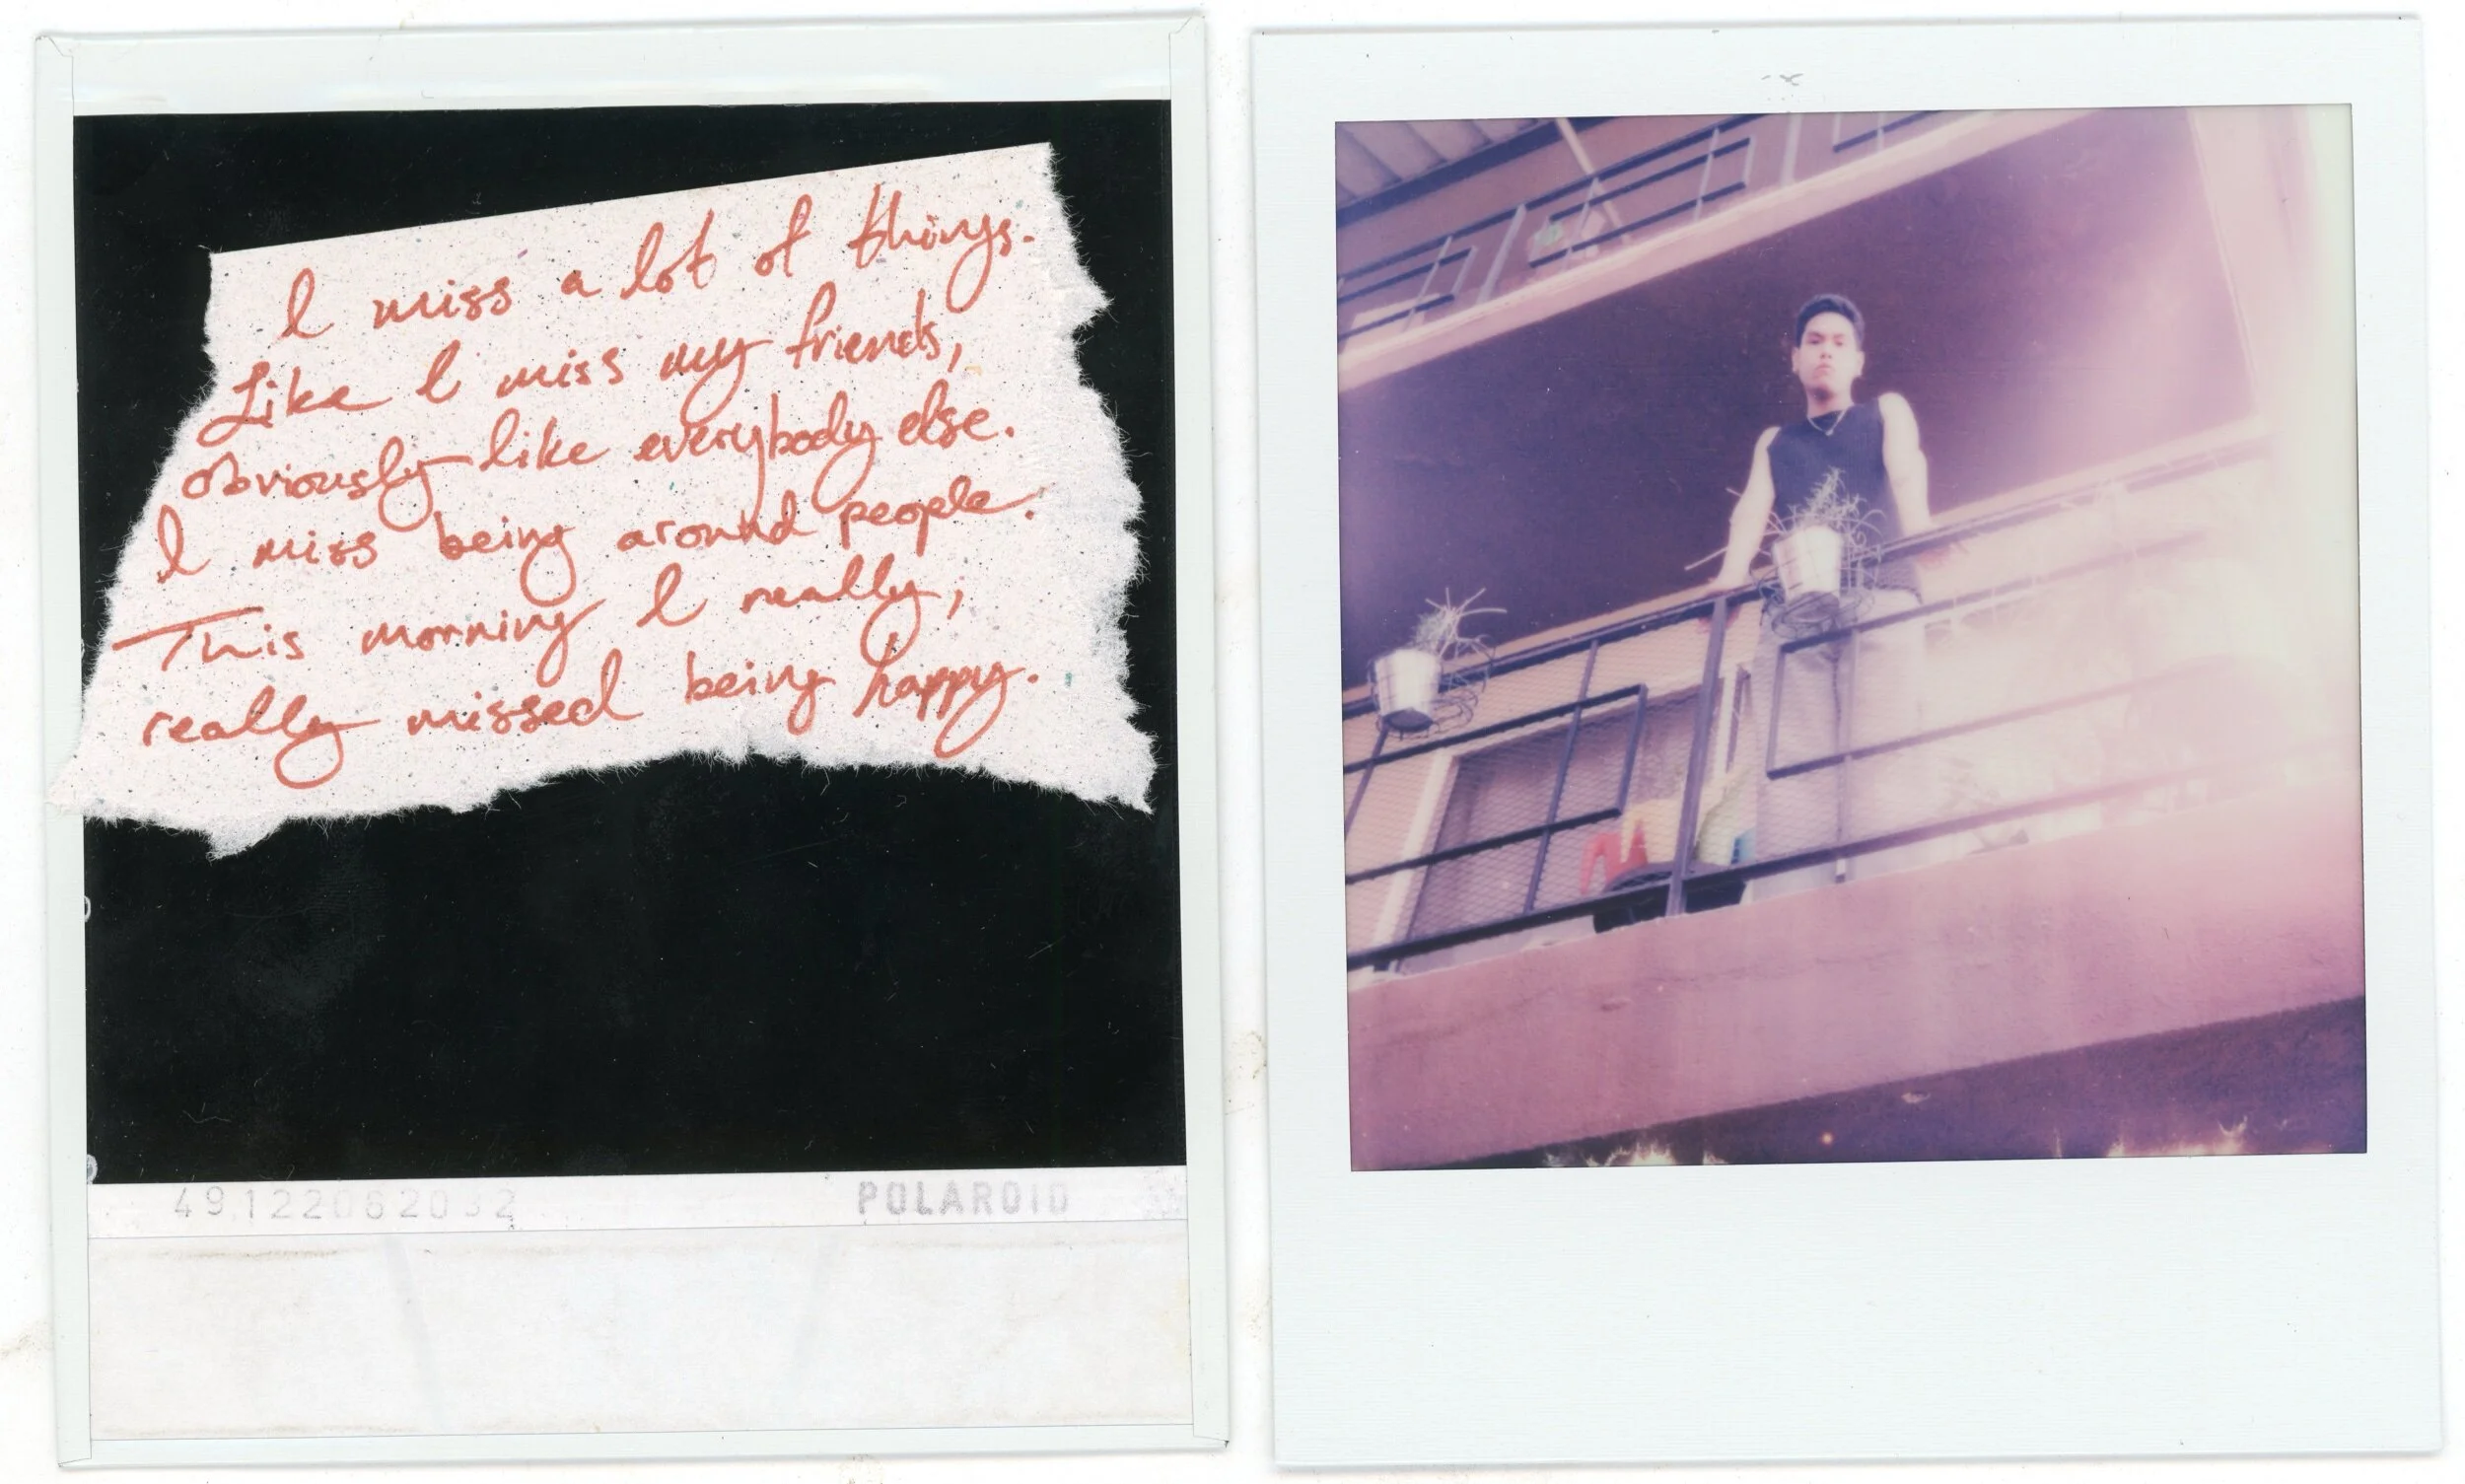 I miss a lot of things.
Like I miss my friends,
obviously like everybody else.
I miss being around people.
This morning I really,
really missed being happy.
POLAROID